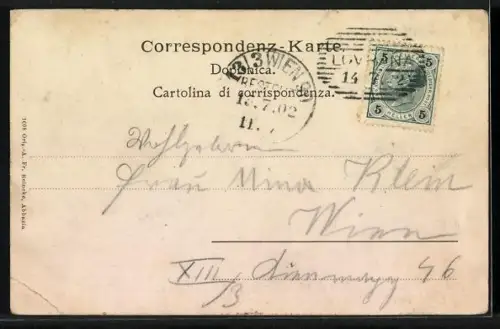 Correspondenz-Karte.
Dopisnica.
Cartolina di corrispondenza.
LOVRANA
14 7 02
13/3 WIEN
15.7.02
11.
5 5
5 HELLER 5
Wohlgeboren
Frau Mina Klein
Wien
XIII/3 46